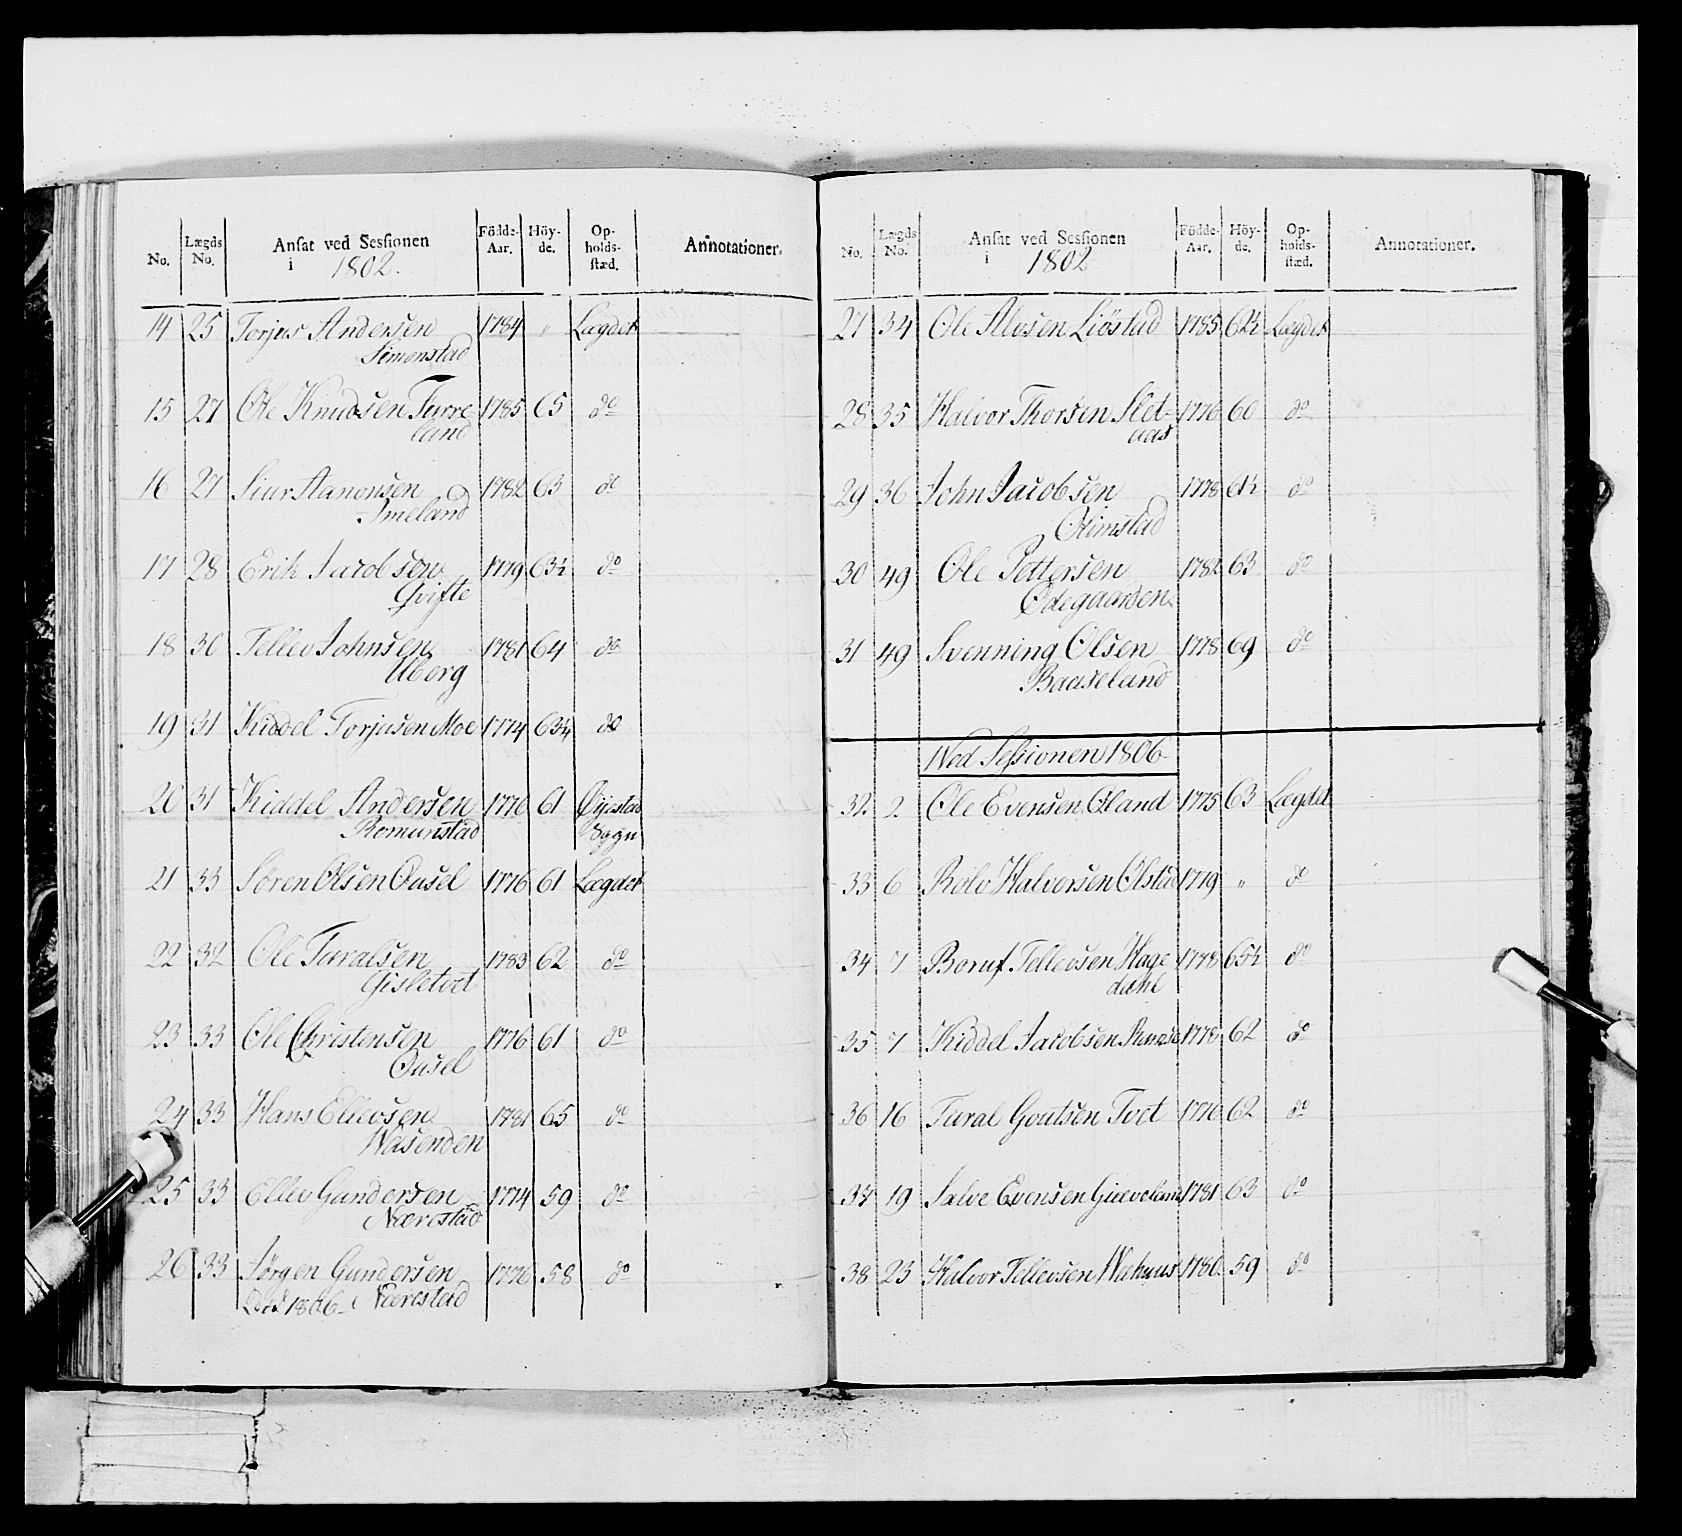 No. Lægds No. Ansat ved Sessionen i 1802. Födde-Aar. Höy-de. Op-holds-stæd. Annotationer.
14 25 Torjus Andersen 1784 " Lægdet
Simonstad
15 27 Ole Knudsen Furre 1785 65 do
land
16 27 Siur Aanonsen 1782 63 do
Ameland
17 28 Erik Jacobsen 1779 63½ do
Gvifte
18 30 Tellev Johnsen 1781 64 do
Uberg
19 31 Kiddel Torjusen Moe 1774 63¼ do
20 31 Kiddel Andersen 1776 61 Øyestad
Romunstad Sogn
21 33 Søren Olsen Ousel 1776 61 Lægdet
22 32 Ole Taralsen 1783 62 do
Gisletvet
23 33 Ole Christensen 1776 61 do
Ousel
24 33 Hans Ellevsen 1781 65 do
Wasenden
25 33 Ellev Gundersen 1774 59 do
Nærestad
26 33 Jørgen Gundersen 1776 58 do
Død 1806 Nærestad
No. Lægds No. Ansat ved Sessionen i 1802 Födde-Aar. Höy-de. Op-holds-stæd. Annotationer.
27 34 Ole Alvsen Liöstad 1785 62½ Lægdet
28 35 Halvor Thorsen Slet- 1776 60 do
aas
29 36 John Jacobsen 1778 61½ do
Olimstad
30 49 Ole Pettersen 1782 63 do
Ødegaarden
31 49 Svenning Olsen 1778 69 do
Baaseland
Ved Sessionen 1806
32 2 Ole Evensen Øland 1775 63 Lægdet
33 6 Rolv Halvorsen Olstad 1779 " do
34 7 Boruf Tellevsen Hage 1778 65½ do
dahl
35 7 Kiddel Jacobsen 1778 62 do
36 16 Taral Goutsen Tvet 1776 62 do
37 19 Salve Evensen Gieveland 1781 63 do
38 23 Halvor Tellevsen Wehuus 1780 59 do